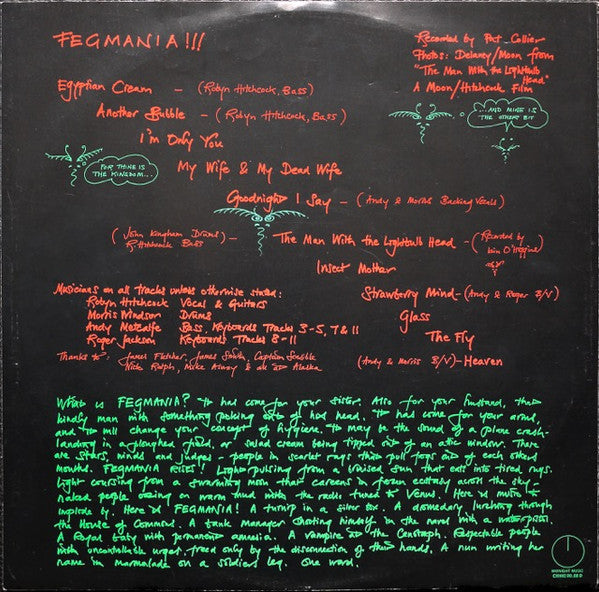 FEGMANIA!!!
Recorded by Pat Collier
Photos: Delaney/Moon from
"The Man With the Lightbulb
Head"
A Moon/Hitchcock Film
Egyptian Cream - (Robyn Hitchcock, Bass)
Another Bubble - (Robyn Hitchcock, Bass)
I'm Only You
...AND MINE IS
THE OTHER BIT
FOR THINE IS
THE KINGDOM...
My Wife & My Dead Wife
Goodnight I Say - (Andy & Morris Backing Vocals)
(John Kingham Drums)
R. Hitchcock Bass) - The Man With the Lightbulb Head - (Recorded by
Iain O'Higgins)
Insect Mother
Strawberry Mind - (Andy & Roger B/V)
Glass
The Fly
(Andy & Morris B/V) - Heaven
Musicians on all Tracks unless otherwise stated:
Robyn Hitchcock Vocal & Guitars
Morris Windsor Drums
Andy Metcalfe Bass, Keyboards Tracks 3-5, 7 & 11
Roger Jackson Keyboards Tracks 8-11
Thanks to James Fletcher, James Smith, Captain Sensible
Nick Ralph, Mike Alway & all at Alaska
What is FEGMANIA? It had come for your sister. Also for your husband, the
kindly man with something poking out of his head. It had come for your armd,
and it will change your concept of hygiene. It may be the sound of a plane crash-
landing in a ploughed field, or salad cream being tipped out of an attic window. There
are stars, minds and judges - people in scarlet rags that pull tops out of each others
mouths. FEGMANIA RISES! Light pulsing from a bruised sun that exit into tired rags.
Light coursing from a swarming moon that careens in frozen ecstasy across the sky -
naked people oozing on warm mud with the radio tuned to Venus. Here is music to
implode by. Here is FEGMANIA! A turnip in a silver box. A dromedary lurching through
the House of Commons. A bank manager shooting himself in the navel with a water-pistol.
A Royal baby with permanent amnesia. A vampire at the Cenotaph. Respectable people
with uncontrollable urges freed only by the disconnection of their hands. A nun writing her
name in marmalade on a soldiers leg. One word.
MIDNIGHT MUSIC
CHIME 00.08 D